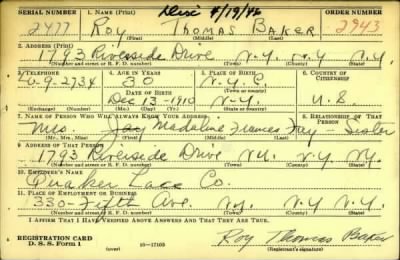 Disc 4/19/46
SERIAL NUMBER 1. NAME (Print) ORDER NUMBER
2477 ROY THOMAS BAKER 2943
(First) (Middle) (Last)
2. ADDRESS (Print)
1793 Riverside Drive N.Y. N.Y. N.Y.
(Number and street or R. F. D. number) (Town) (County) (State)
3. TELEPHONE 4. AGE IN YEARS 5. PLACE OF BIRTH 6. COUNTRY OF CITIZENSHIP
9-2734 30 N.Y.C.
(Town or county)
DATE OF BIRTH
Dec 13-1910 N.Y. U.S.
(Exchange) (Number) (Mo.) (Day) (Yr.) (State or country)
7. NAME OF PERSON WHO WILL ALWAYS KNOW YOUR ADDRESS 8. RELATIONSHIP OF THAT PERSON
Mrs. Madaline Frances Fay - Sister
(Mr., Mrs., Miss) (First) (Middle) (Last)
9. ADDRESS OF THAT PERSON
1793 Riverside Drive N. N.Y. N.Y.
(Number and street or R. F. D. number) (Town) (County) (State)
10. EMPLOYER'S NAME
Quaker Lace Co.
11. PLACE OF EMPLOYMENT OR BUSINESS
330-Fifth Ave. N.Y. N.Y. N.Y.
(Number and street or R. F. D. number) (Town) (County) (State)
I AFFIRM THAT I HAVE VERIFIED ABOVE ANSWERS AND THAT THEY ARE TRUE.
REGISTRATION CARD
D. S. S. Form 1 (over) 16-17105
Roy Thomas Baker
(Registrant's signature)